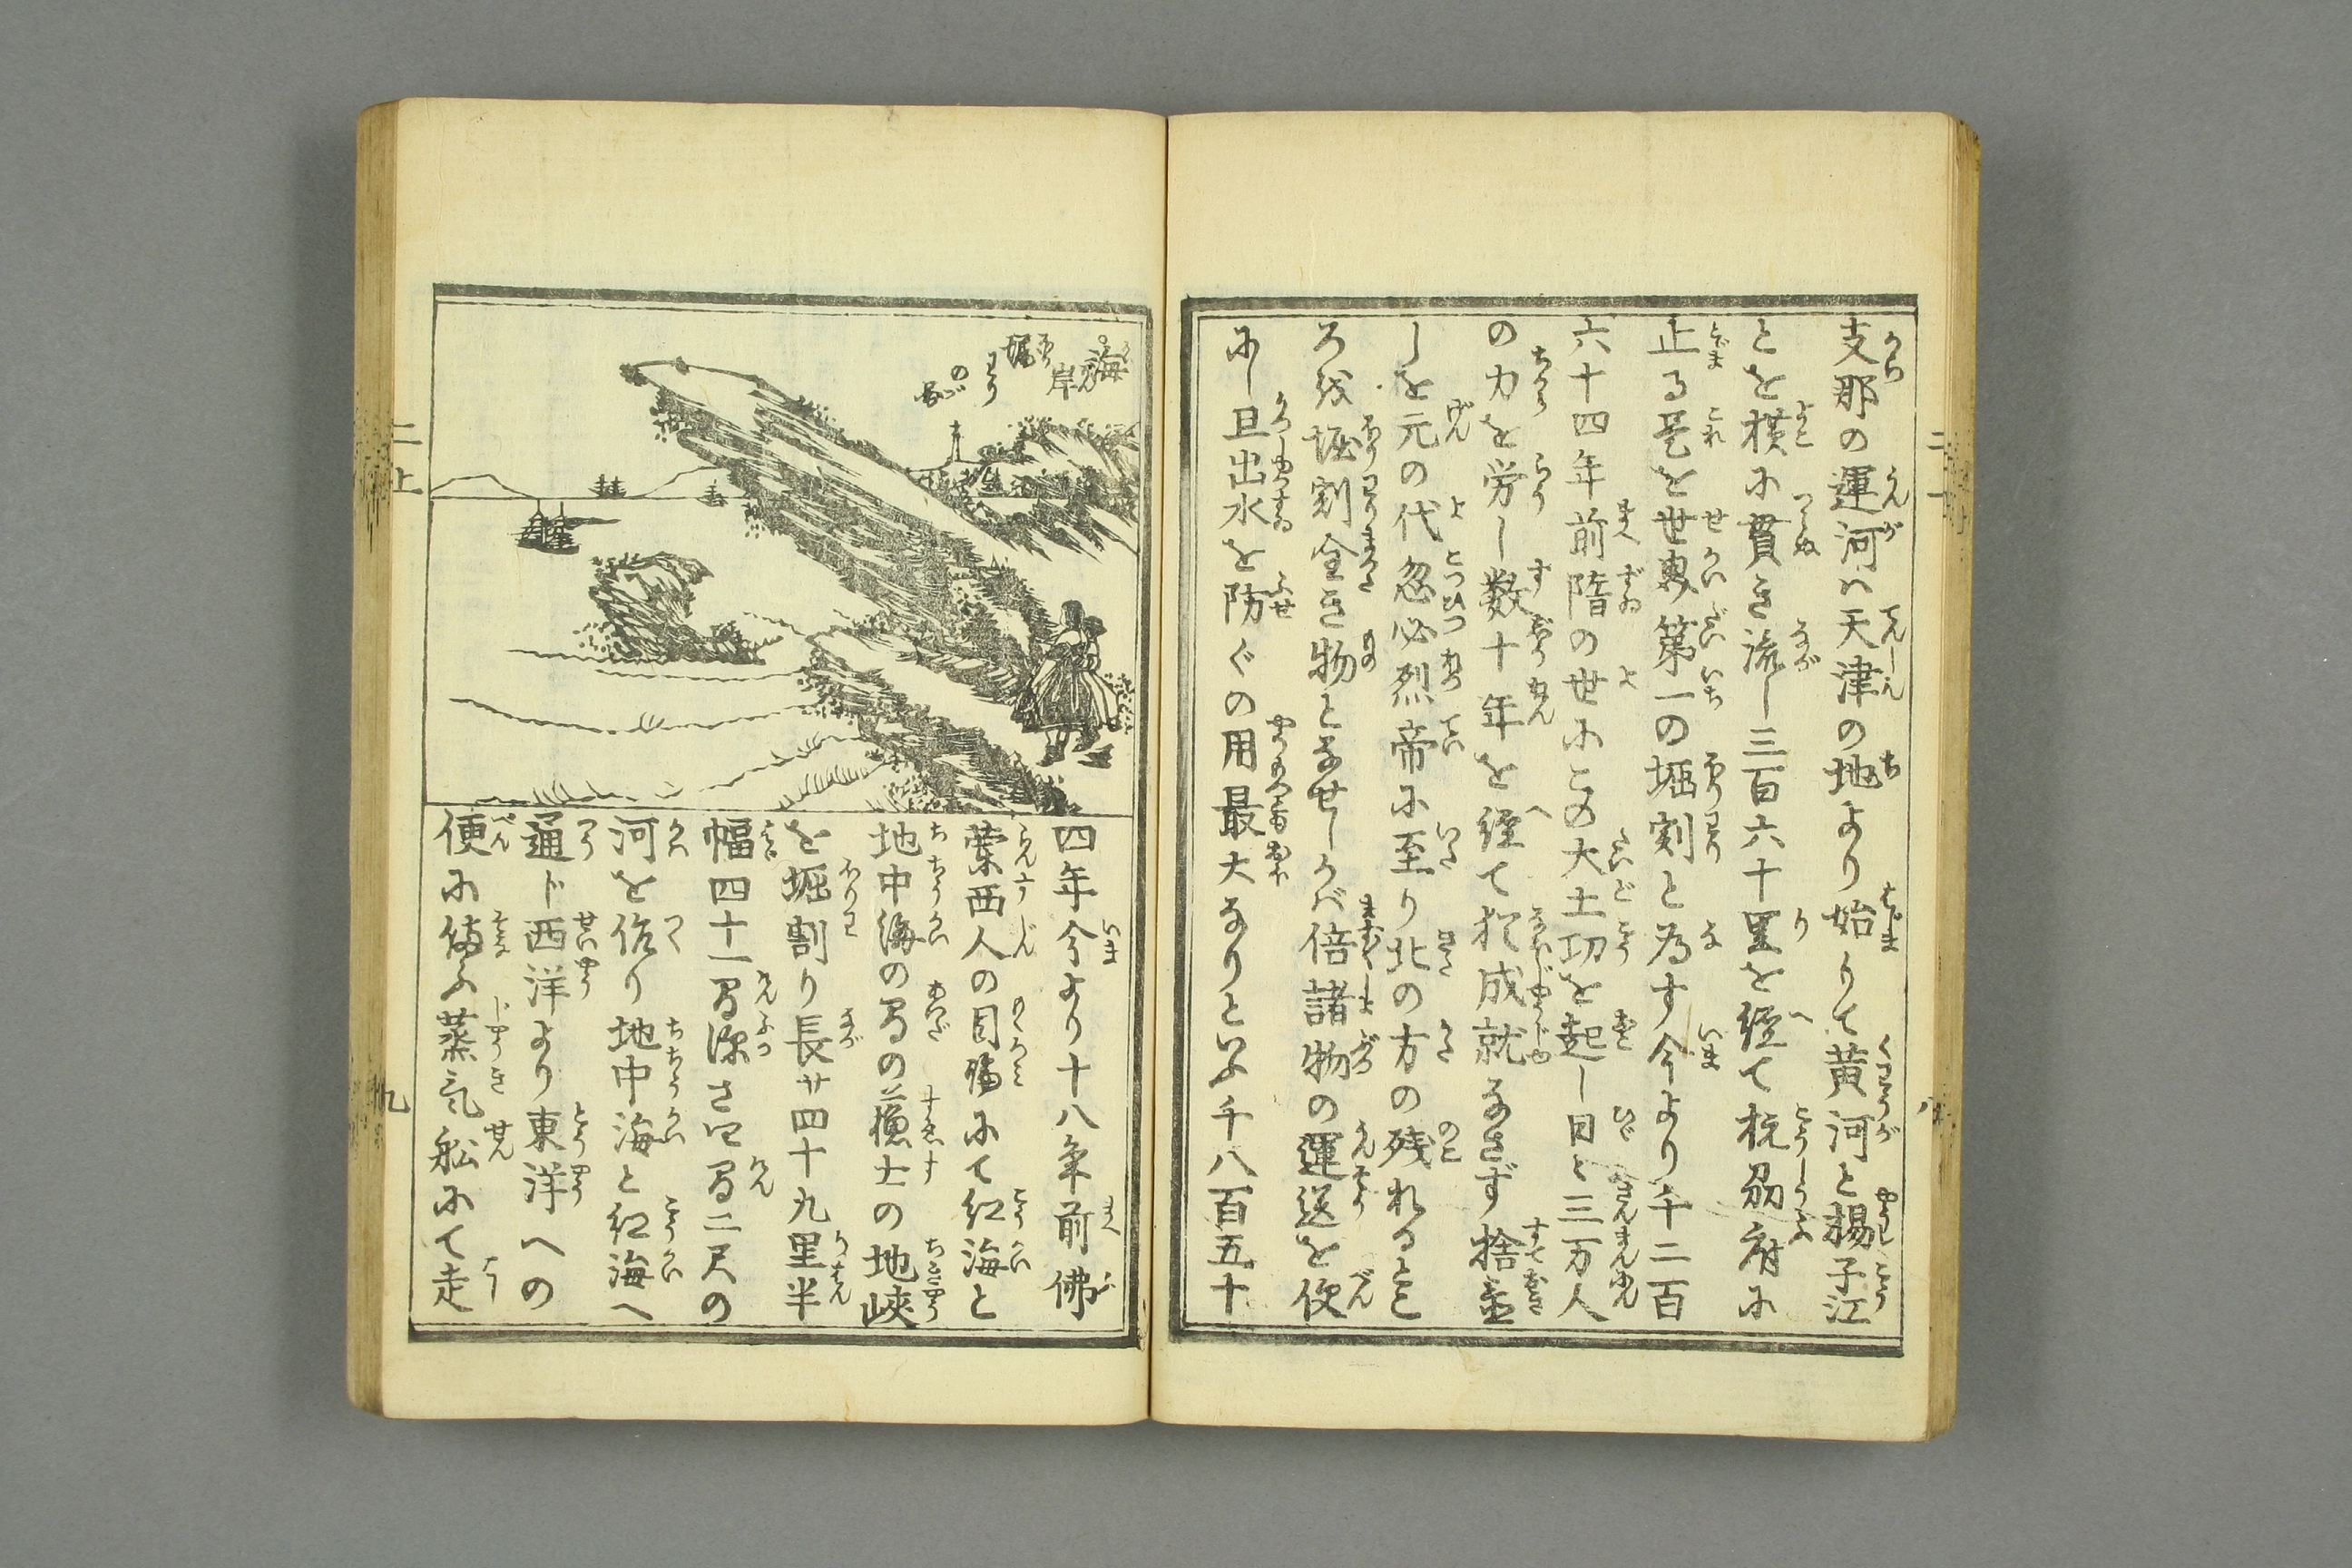 支那の運河ハ天津の地より始りて黄河と楊子江
とを横に貫き流し三百六十里を経て杭州府に
止る是を世界第一の堀割と為す今より千二百
六十四年前隋の世にこの大土功を起し日々三万人
の力を労し数十年を経て猶成就なさず捨置
しを元の代忽必烈帝に至り北の方の残れるとこ
ろ我堀割全き物となせしかバ倍諸物の運送を便
にし且出水を防ぐの用最大なりといふ千八百五十
海岸
堀わり
の圖
四年今より十八年前佛
蘭西人の目論にて紅海と
地中海の間の蘓士の地峡
を堀割り長サ四十九里半
幅四十一間深さ四間二尺の
河を作り地中海と紅海へ
通ド西洋より東洋への
便に備ふ蒸気船にて走
二上
九
二上
八